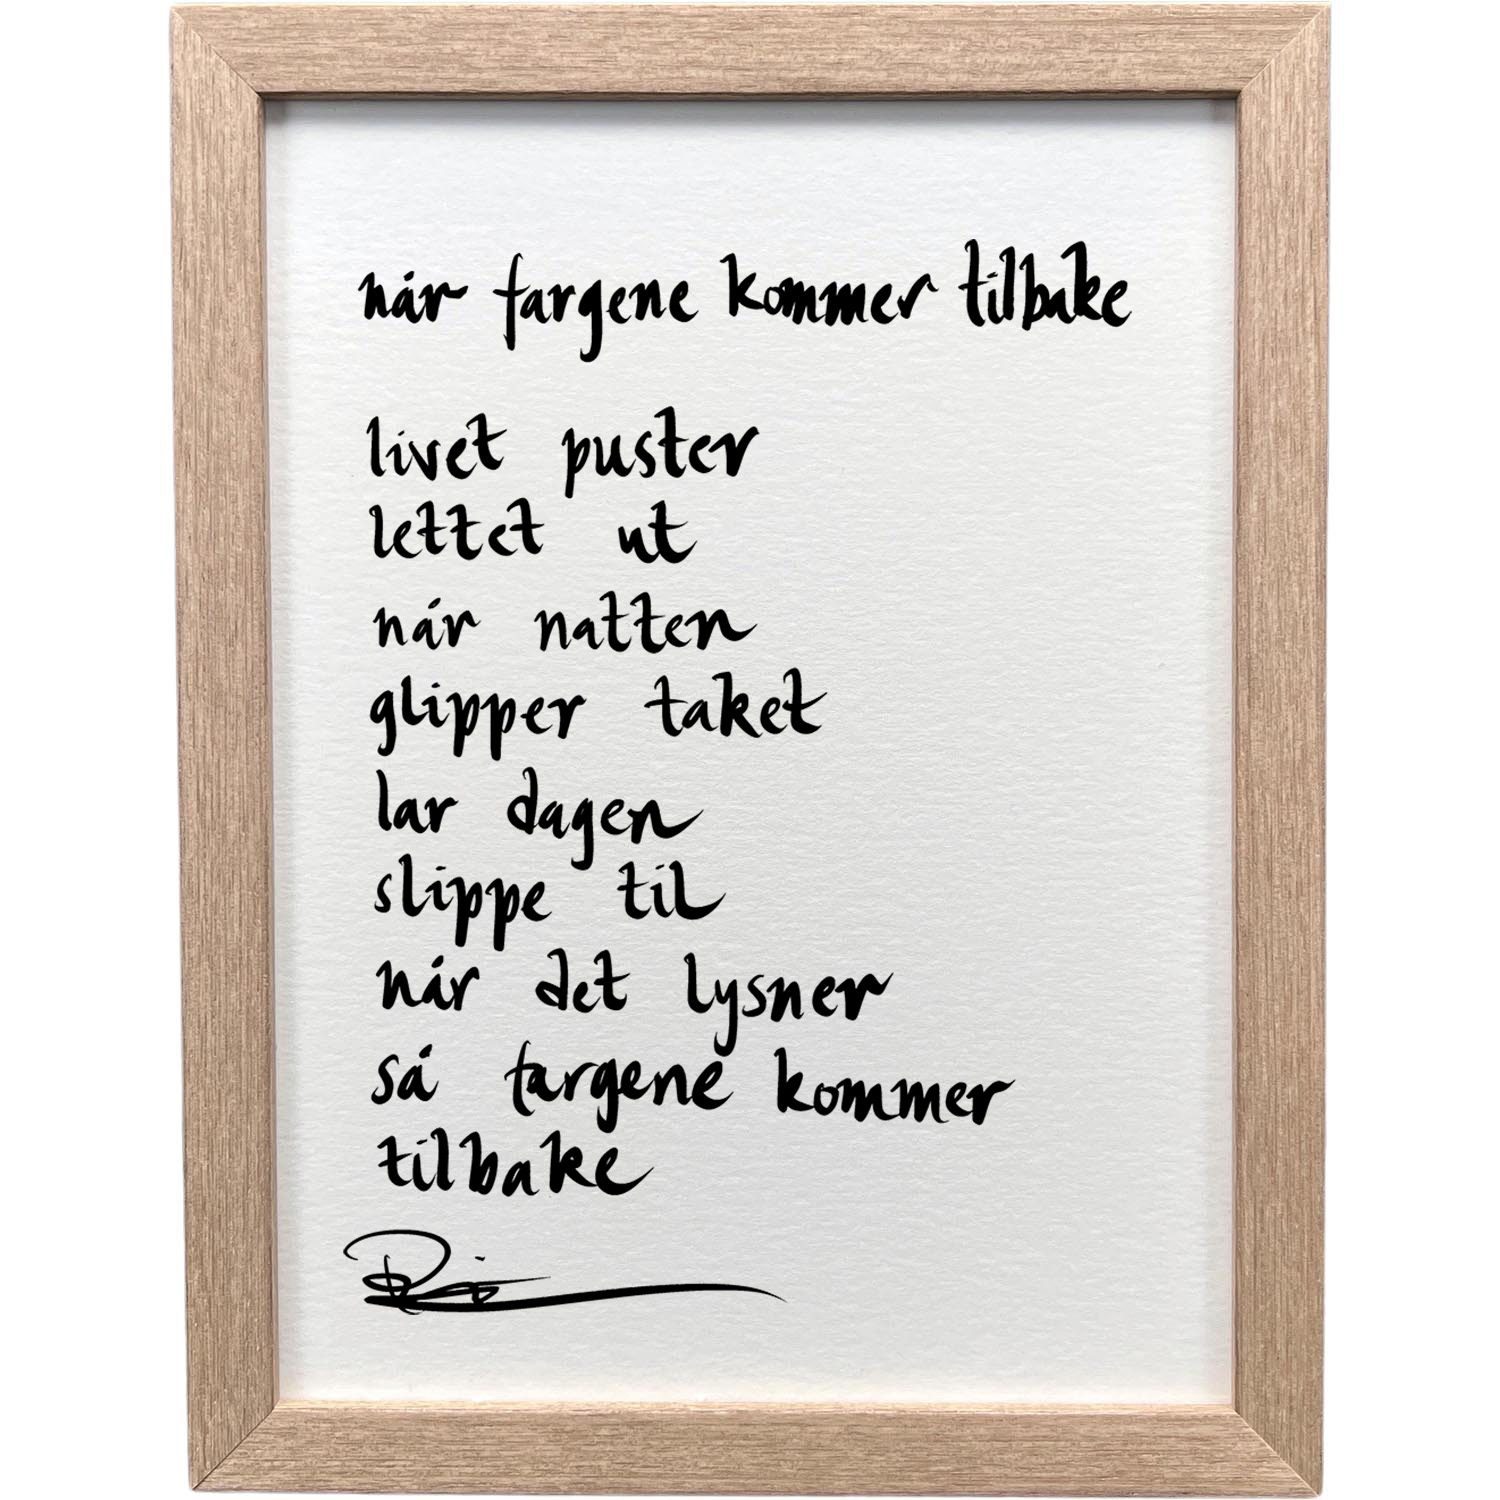 når fargene kommer tilbake
livet puster
lettet ut
når natten
glipper taket
lar dagen
slippe til
når det lysner
så fargene kommer
tilbake